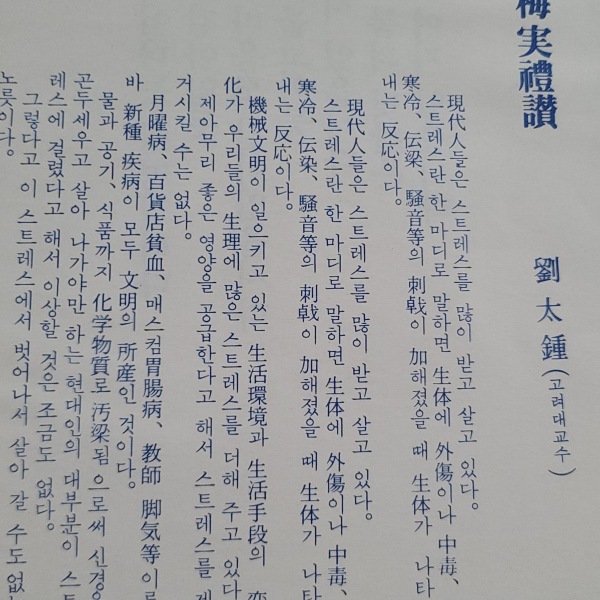 梅実禮讃
劉太鍾(고려대교수)
現代人들은 스트레스를 많이 받고 살고 있다.
스트레스란 한 마디로 말하면 生体에 外傷이나 中毒、
寒冷、伝梁、騷音等의 刺戟이 加해졌을 때 生体가 나타
내는 反応이다.
現代人들은 스트레스를 많이 받고 살고 있다.
스트레스란 한 마디로 말하면 生体에 外傷이나 中毒、
寒冷、伝染、騷音等의 刺戟이 加해졌을 때 生体가 나타
내는 反応이다.
機械文明이 일으키고 있는 生活環境과 生活手段의
化가 우리들의 生理에 많은 스트레스를 더해 주고 있다
제아무리 좋은 영양을 공급한다고 해서 스트레스를 제
거시킬 수는 없다.
月曜病、百貨店貧血、매스컴胃腸病、教師 脚気等 이르
바 新種 疾病이 모두 文明의 所産인 것이다.
물과 공기、식품까지 化学物質로 汚梁됨 으로써 신경으
곤두세우고 살아 나가야만 하는 현대인의 대부분이 스트
레스에 걸렸다고 해서 이상할 것은 조금도 없다.
그렇다고 이 스트레스에서 벗어나서 살아 갈 수도 없는
노릇이다.